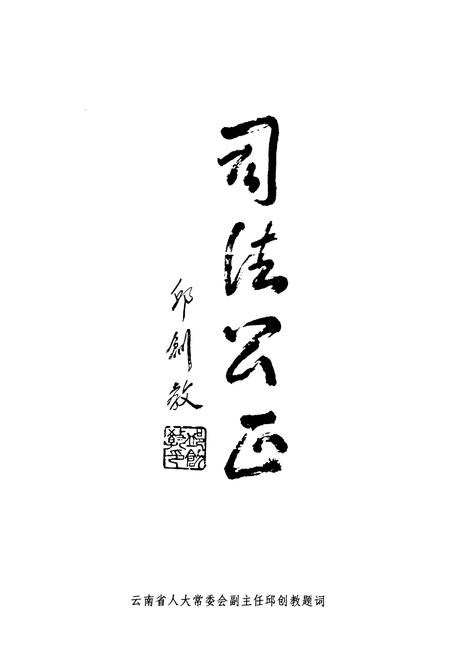 司法公正
邱创教
邱创教印
云南省人大常委会副主任邱创教题词